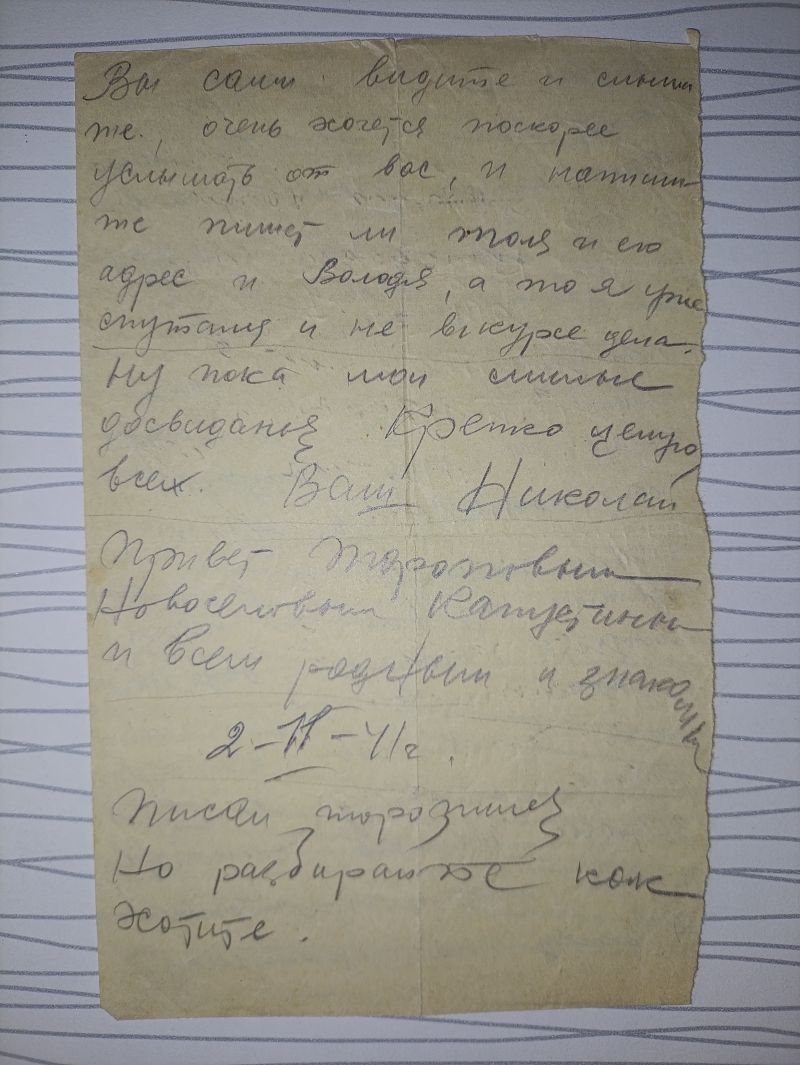 Вы сами видите и слыши
те, очень хочется поскорее
услышать от вас, и напиши
те пишет ли Толя и его
адрес и Володя, а то я уже
спутался и не вкурсе дела.
Ну пока мои милые
досвиданья Крепко целую
всех. Ваш Николай
Привет Тороповым
Новоселовым Капустиным
и всем родным и знакомым
2-II-41г.
Писал торопился
Но разбирайте как
хотите.